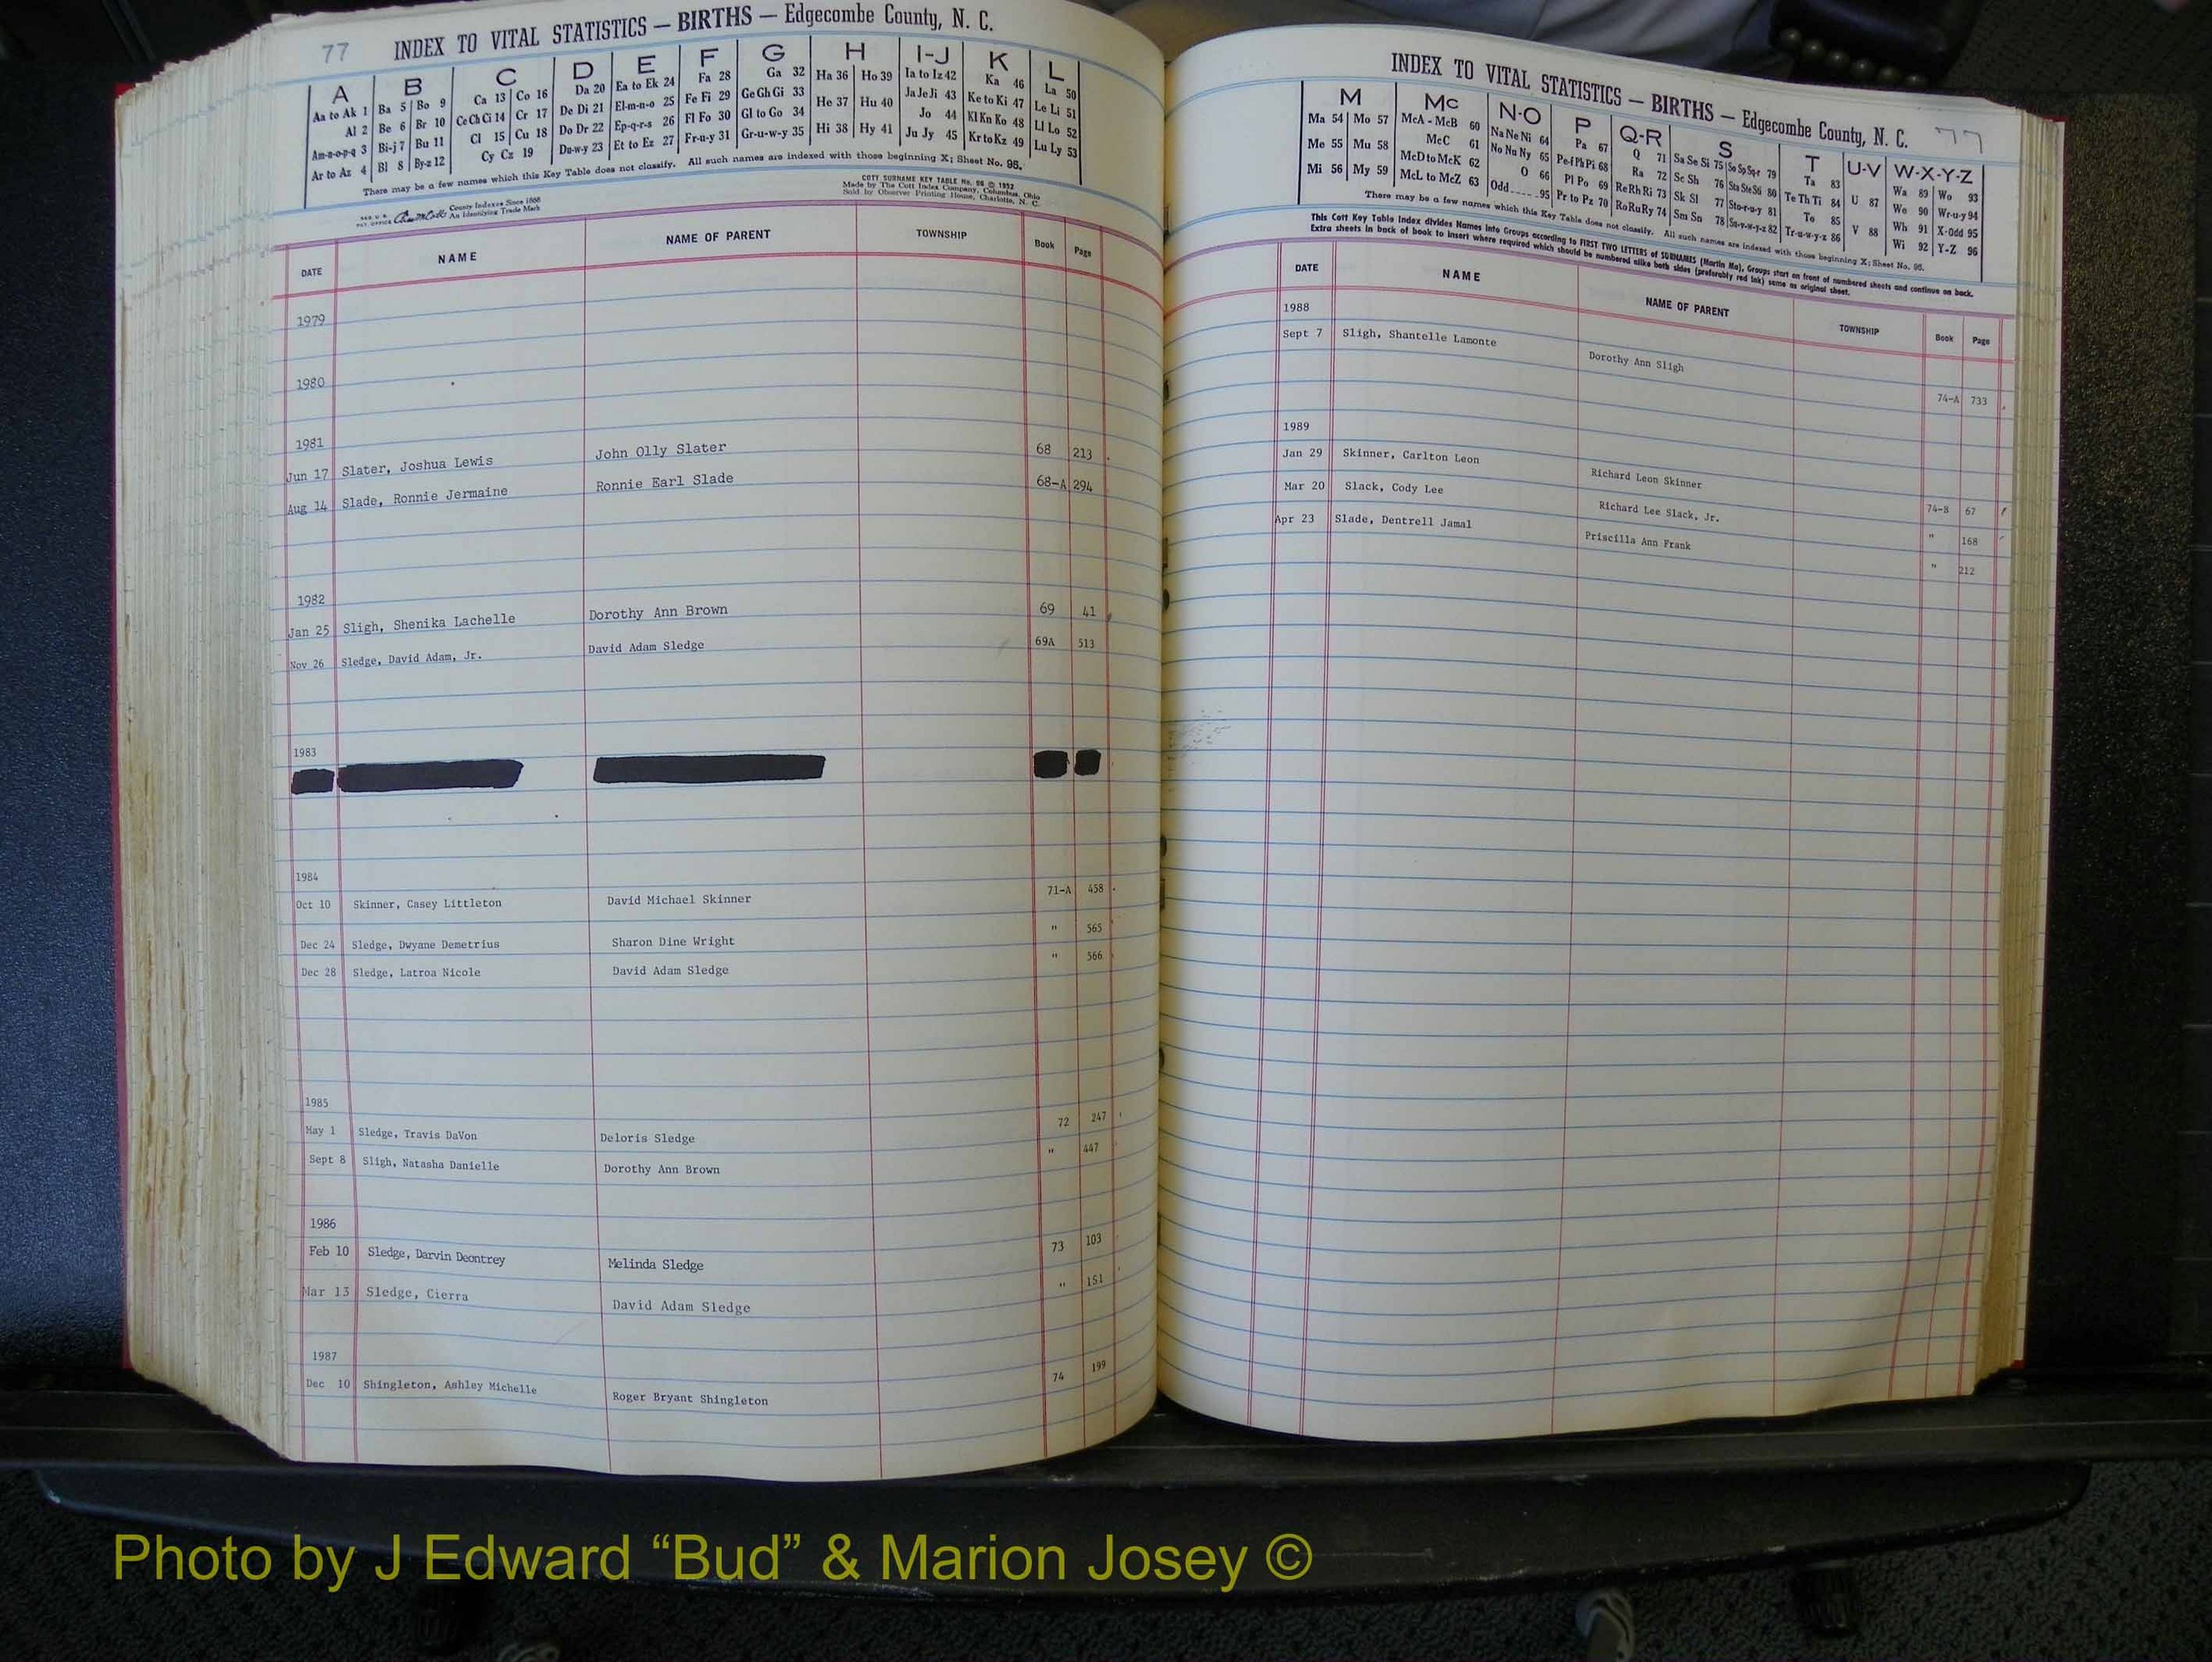 77 INDEX TO VITAL STATISTICS — BIRTHS — Edgecombe County, N. C.
A B C D E F G H I-J K L
Aa to Ak 1 Ba 5 Bo 9 Ca 13 Co 16 Da 20 Ea to Ek 24 Fa 28 Ga 32 Ha 36 Ho 39 Ia to Iz 42 Ka 46 La 50
Al 2 Be 6 Br 10 Ce Ch Ci 14 Cr 17 De Di 21 El-m-n-o 25 Fe Fi 29 Ge Gh Gi 33 He 37 Hu 40 Ja Je Ji 43 Ke to Ki 47 Le Li 51
Am-n-o-p-q 3 Bi-j 7 Bu 11 Cl 15 Cu 18 Do Dr 22 Ep-q-r-s 26 Fl Fo 30 Gl to Go 34 Hi 38 Hy 41 Jo 44 Kl Kn Ko 48 Ll Lo 52
Ar to Az 4 Bl 8 By-z 12 Cy Cz 19 Du-w-y 23 Et to Ez 27 Fr-u-y 31 Gr-u-w-y 35 Ju Jy 45 Kr to Kz 49 Lu Ly 53
There may be a few names which this Key Table does not classify. All such names are indexed with those beginning X; Sheet No. 95.
County Indexes Since 1888
An Identifying Trade Mark
COTT SURNAME KEY TABLE No. 96 © 1952
Made by The Cott Index Company, Columbus, Ohio
Sold by Observer Printing House, Charlotte, N. C.
DATE NAME NAME OF PARENT TOWNSHIP Book Page
1979
1980
1981
Jun 17 Slater, Joshua Lewis John Olly Slater 68 213
Aug 14 Slade, Ronnie Jermaine Ronnie Earl Slade 68-A 294
1982
Jan 25 Sligh, Shenika Lachelle Dorothy Ann Brown 69 41
Nov 26 Sledge, David Adam, Jr. David Adam Sledge 69A 513
1983
1984
Oct 10 Skinner, Casey Littleton David Michael Skinner 71-A 458
Dec 24 Sledge, Dwyane Demetrius Sharon Dine Wright " 565
Dec 28 Sledge, Latroa Nicole David Adam Sledge " 566
1985
May 1 Sledge, Travis DaVon Deloris Sledge 72 247
Sept 8 Sligh, Natasha Danielle Dorothy Ann Brown " 447
1986
Feb 10 Sledge, Darvin Deontrey Melinda Sledge 73 103
Mar 13 Sledge, Cierra David Adam Sledge " 151
1987
Dec 10 Shingleton, Ashley Michelle Roger Bryant Shingleton 74 199
INDEX TO VITAL STATISTICS — BIRTHS — Edgecombe County, N. C. 77
M Mc N-O P Q-R S T U-V W-X-Y-Z
Ma 54 Mo 57 McA - McB 60 Na Ne Ni 64 Pa 67 Q 71 Sa Se Si 75 So Sp Sq-r 79 Ta 83 U 87 Wa 89 Wo 93
Me 55 Mu 58 McC 61 No Nu Ny 65 Pe-f Ph Pi 68 Ra 72 Sc Sh 76 Sta Ste Sti 80 Te Th Ti 84 We 90 Wr-u-y 94
Mi 56 My 59 McD to McK 62 O 66 Pl Po 69 Re Rh Ri 73 Sk Sl 77 Sto-r-u-y 81 To 85 V 88 Wh 91 X-Odd 95
McL to McZ 63 Odd 95 Pr to Pz 70 Ro Ru Ry 74 Sm Sn 78 Su-v-w-y-z 82 Tr-u-w-y-z 86 Wi 92 Y-Z 96
There may be a few names which this Key Table does not classify. All such names are indexed with those beginning X; Sheet No. 95.
This Cott Key Table Index divides Names into Groups according to FIRST TWO LETTERS of SURNAMES (Martin Ma), Groups start on front of numbered sheets and continue on back.
Extra sheets in back of book to insert where required which should be numbered alike both sides (preferably red ink) same as original sheet.
DATE NAME NAME OF PARENT TOWNSHIP Book Page
1988
Sept 7 Sligh, Shantelle Lamonte Dorothy Ann Sligh 74-A 733
1989
Jan 29 Skinner, Carlton Leon Richard Leon Skinner 74-B 67
Mar 20 Slack, Cody Lee Richard Lee Slack, Jr. " 168
Apr 23 Slade, Dentrell Jamal Priscilla Ann Frank " 212
Photo by J Edward “Bud” & Marion Josey ©